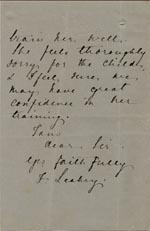 train her well.
She feels thoroughly
sorry for the child
& I feel sure we
may have great
confidence in her
training.
I am
dear Sir
yrs faithfully
F. Leahy.